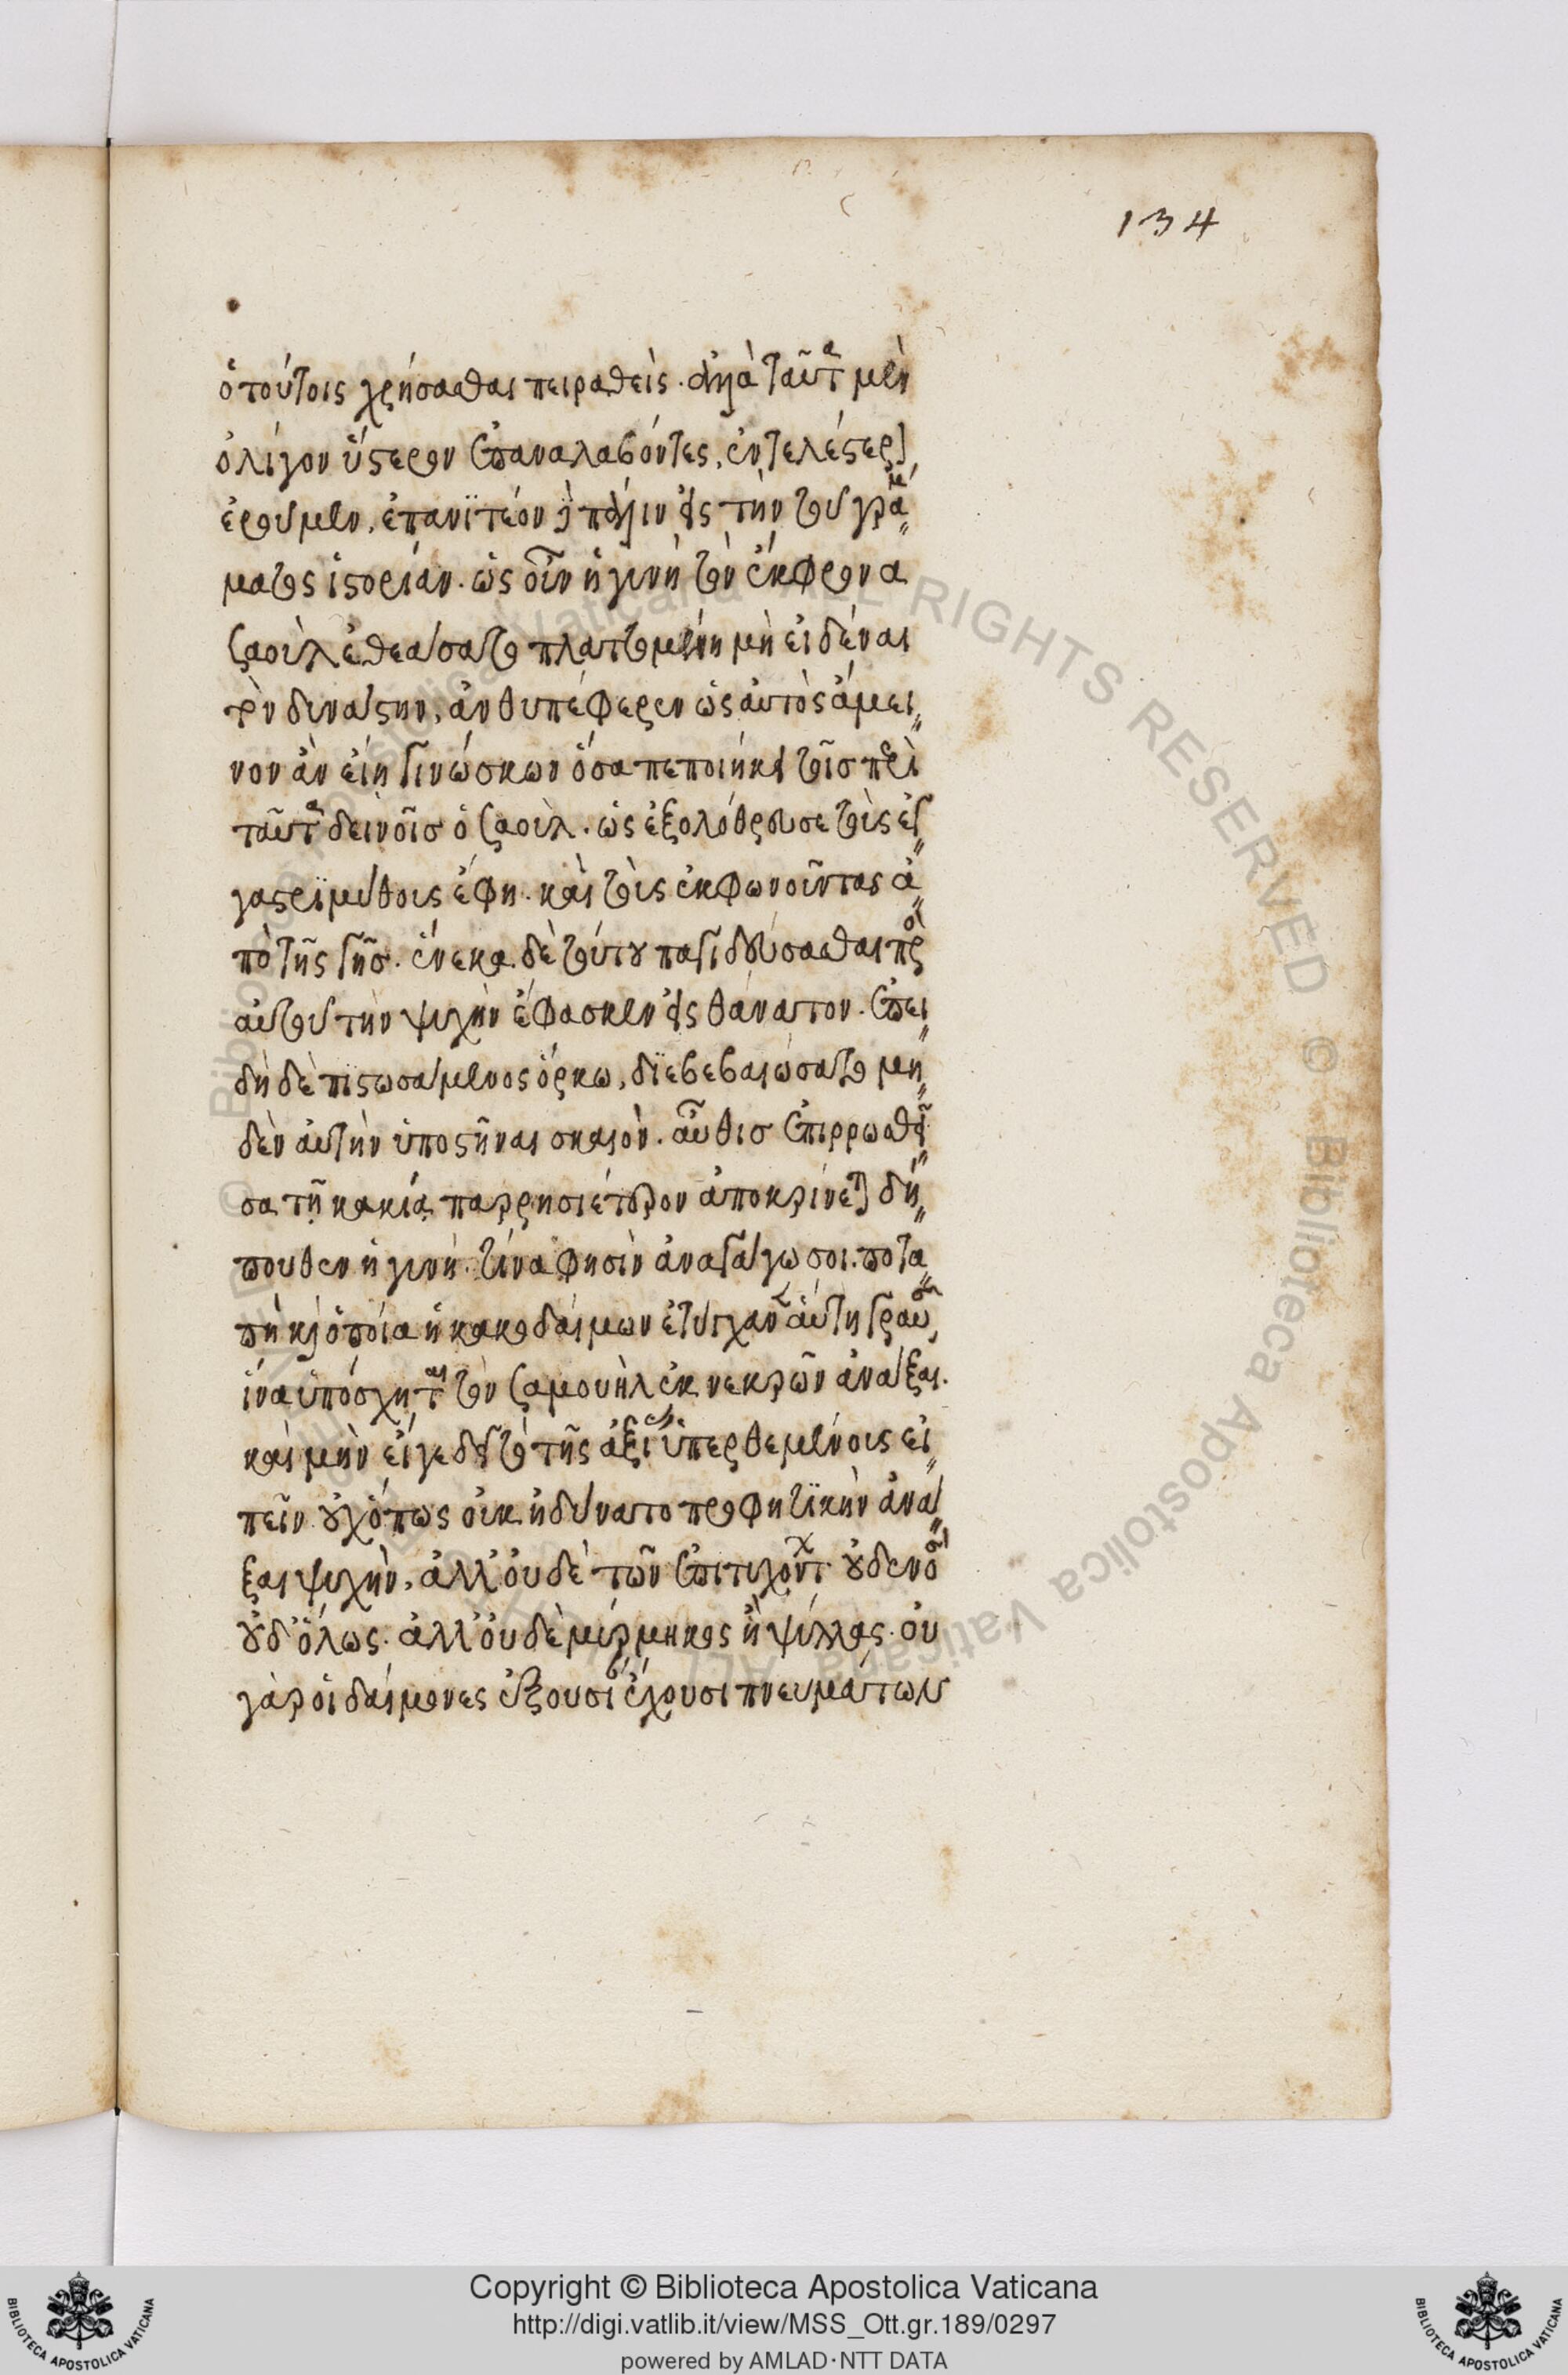 134
ὁ τούτοις χρήσασθαι πειραθείς. ἀλλὰ ταῦτα μὲν
ὀλίγον ὕστερον ἐπαναλαβόντες, ἐντελέστερον
ἐροῦμεν, ἐπανϊτέον δὲ πάλιν εἰς τὴν τοῦ γράμ
ματος ἱστορίαν. ὡς οὖν ἡ γυνὴ τὸν ἔκφρονα
σαοὺλ ἐθεάσατο πλαττομένη μὴ εἰδέναι
τὸν δυνάστην, ἀνθυπέφερεν ὡς αὐτὸς ἄμει
νον ἂν εἴη γινώσκων ὅσα πεποίηκε τοῖσ περὶ
ταῦτα δεινοῖσ ὁ σαούλ. ὡς ἐξολόθρευσε τοὺς ἐγ
γαστριμύθους ἔφη. καὶ τοὺς ἐκφωνοῦντας ἀ
πὸ τῆς γῆσ. ἕνεκα δὲ τούτου παγιδεύσασθαι πρὸς
αὐτοῦ τὴν ψυχὴν ἔφασκεν εἰς θάνατον. ἐπει
δὴ δὲ πιστωσάμενος ὅρκω, διεβεβαιώσατο μη
δὲν αὐτὴν ὑποστῆναι σκαιὸν. αὖθισ ἐπιρρωσθεῖ
σα τῇ κακίᾳ παρρησιέστερον ἀποκρίνεται δή
πουθεν ἡ γυνή. τίνα φησὶν ἀναγάγω σοι. ποτα
πὴ καὶ ὁποία ἡ κακοδαίμων ἐτύγχανεν αὕτη γραῦς
ἵνα ὑπόσχηται τὸν σαμουὴλ ἐκ νεκρῶν ἀνάξαι.
καὶ μὴν εἴγε δεῖ τὸ τῆς ἀξίας ὑπερθεμένους εἰ
πεῖν οὐχ ὅπως οὐκ ἠδύνατο προφητϊκὴν ἀνά
ξαι ψυχὴν, ἀλλ' οὐδὲ τῶν ἐπιτυχόντων οὐδενὸς
οὐδ' ὅλως. ἀλλ' οὐδὲ μύρμηκος ἢ ψύλλας. οὐ
γὰρ οἱ δαίμονες ἐξουσίαν ἔχουσι πνευμάτων
Copyright © Biblioteca Apostolica Vaticana
http://digi.vatlib.it/view/MSS_Ott.gr.189/0297
powered by AMLAD·NTT DATA